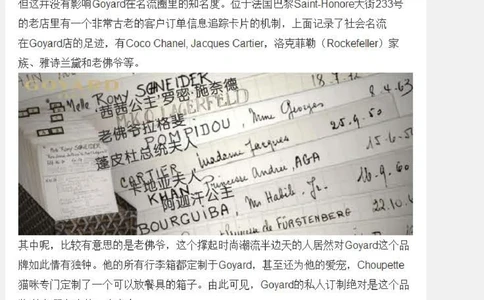 但这并没有影响Goyard在名流圈里的知名度。位于法国巴黎Saint-Honore大街233号
的老店里有一个非常古老的客户订单信息追踪卡片的机制，上面记录了社会名流
在Goyard店的足迹，有Coco Chanel, Jacques Cartier，洛克菲勒（Rockefeller）家
族、雅诗兰黛和老佛爷等。
GOYARD
Melle Romy SNEIDER
茜茜公主 罗密·施奈德
LAGERFELD
8.4.63
老佛爷拉格斐
POMPIDOU, Mme Georges
25.9.50
蓬皮杜总统夫人
CARTIER Madame Jacques
卡地亚夫人
KHAN, Princesse Andrée, AGA
16.9.60
阿迦汗公主
BOURGUIBA, Mr Habib, Jr.
22.10.
de FÜRSTENBERG
其中呢，比较有意思的是老佛爷，这个撑起时尚潮流半边天的人居然对Goyard这个品
牌如此情有独钟。他的所有行李箱都定制于Goyard，甚至还为他的爱宠，Choupette
猫咪专门定制了一个可以放餐具的箱子。由此可见，Goyard的私人订制绝对是这个品